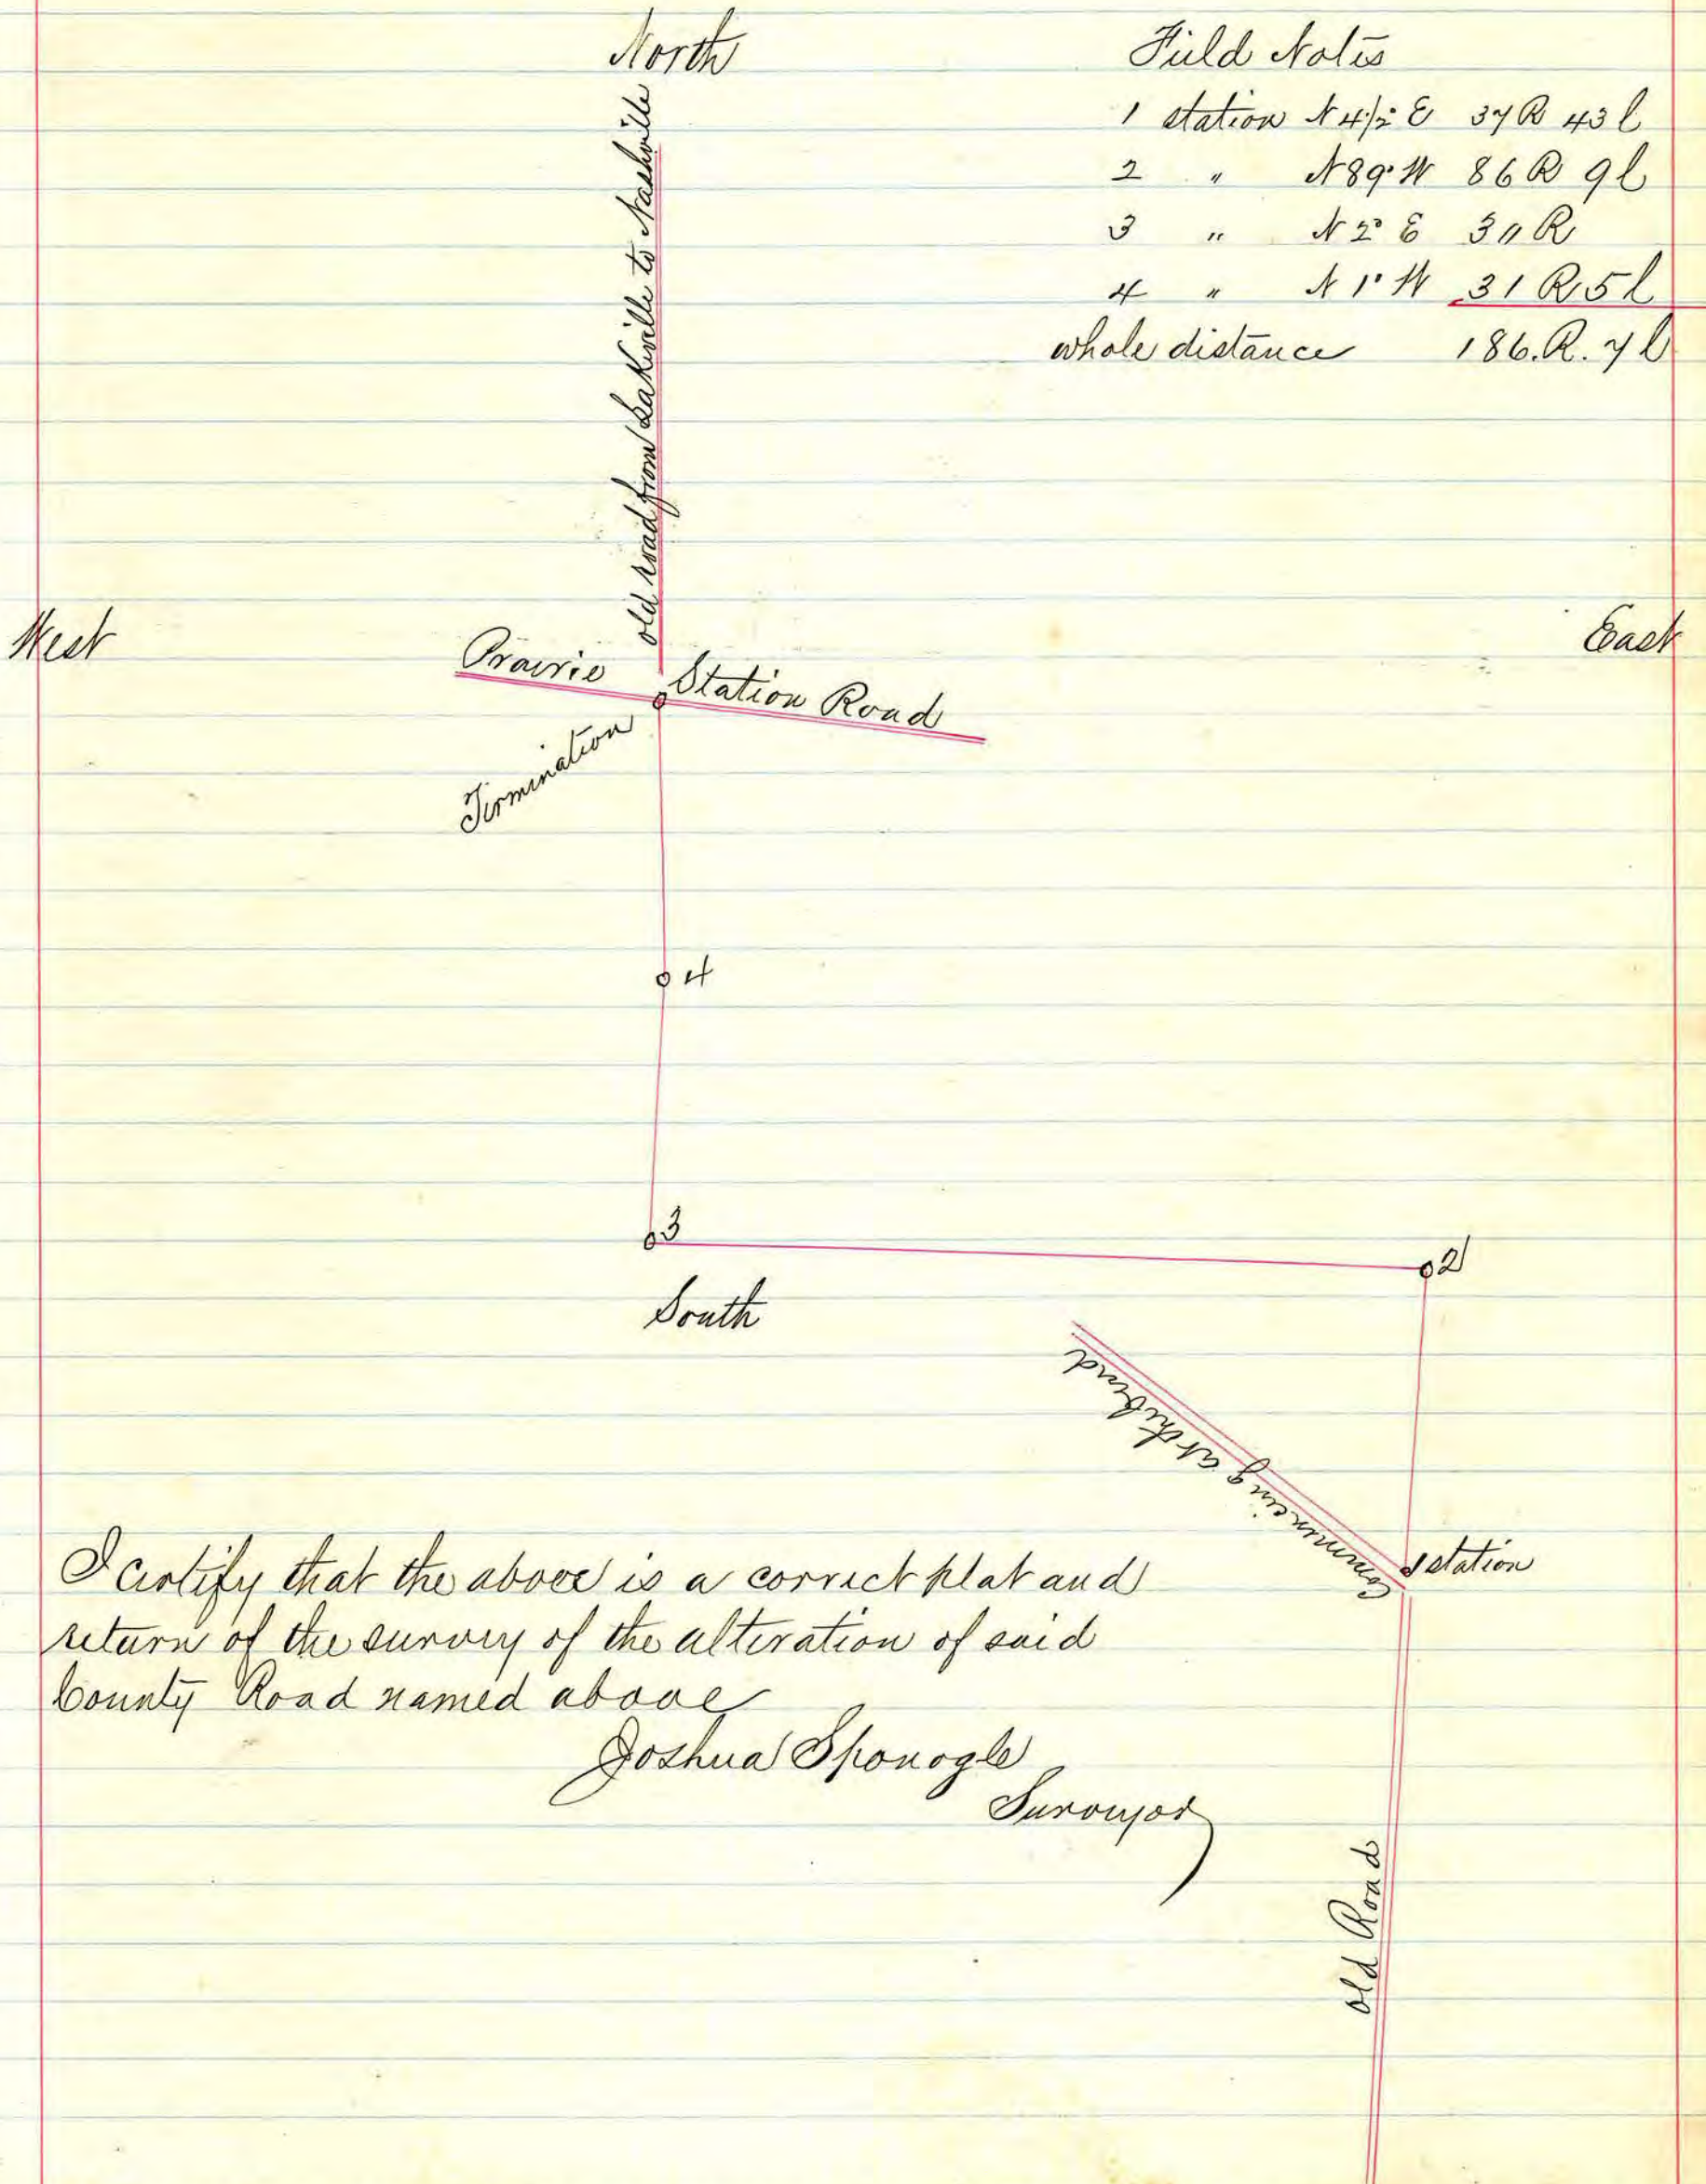 North
Field Notes
1 station N 4½ E 37 R 43 l
2 " N 89° W 86 R 9 l
3 " N 2° E 30 R
4 " N 1° W 31 R 5 l
whole distance 186. R. 7 l
old road from Lakeville to Nashville
West
East
Prairie Station Road
Termination
4
3
2
South
Commencing at the bend
1 station
I certify that the above is a correct plat and
return of the survey of the alteration of said
County Road named above
Joshua Sponogle
Surveyor
old Road